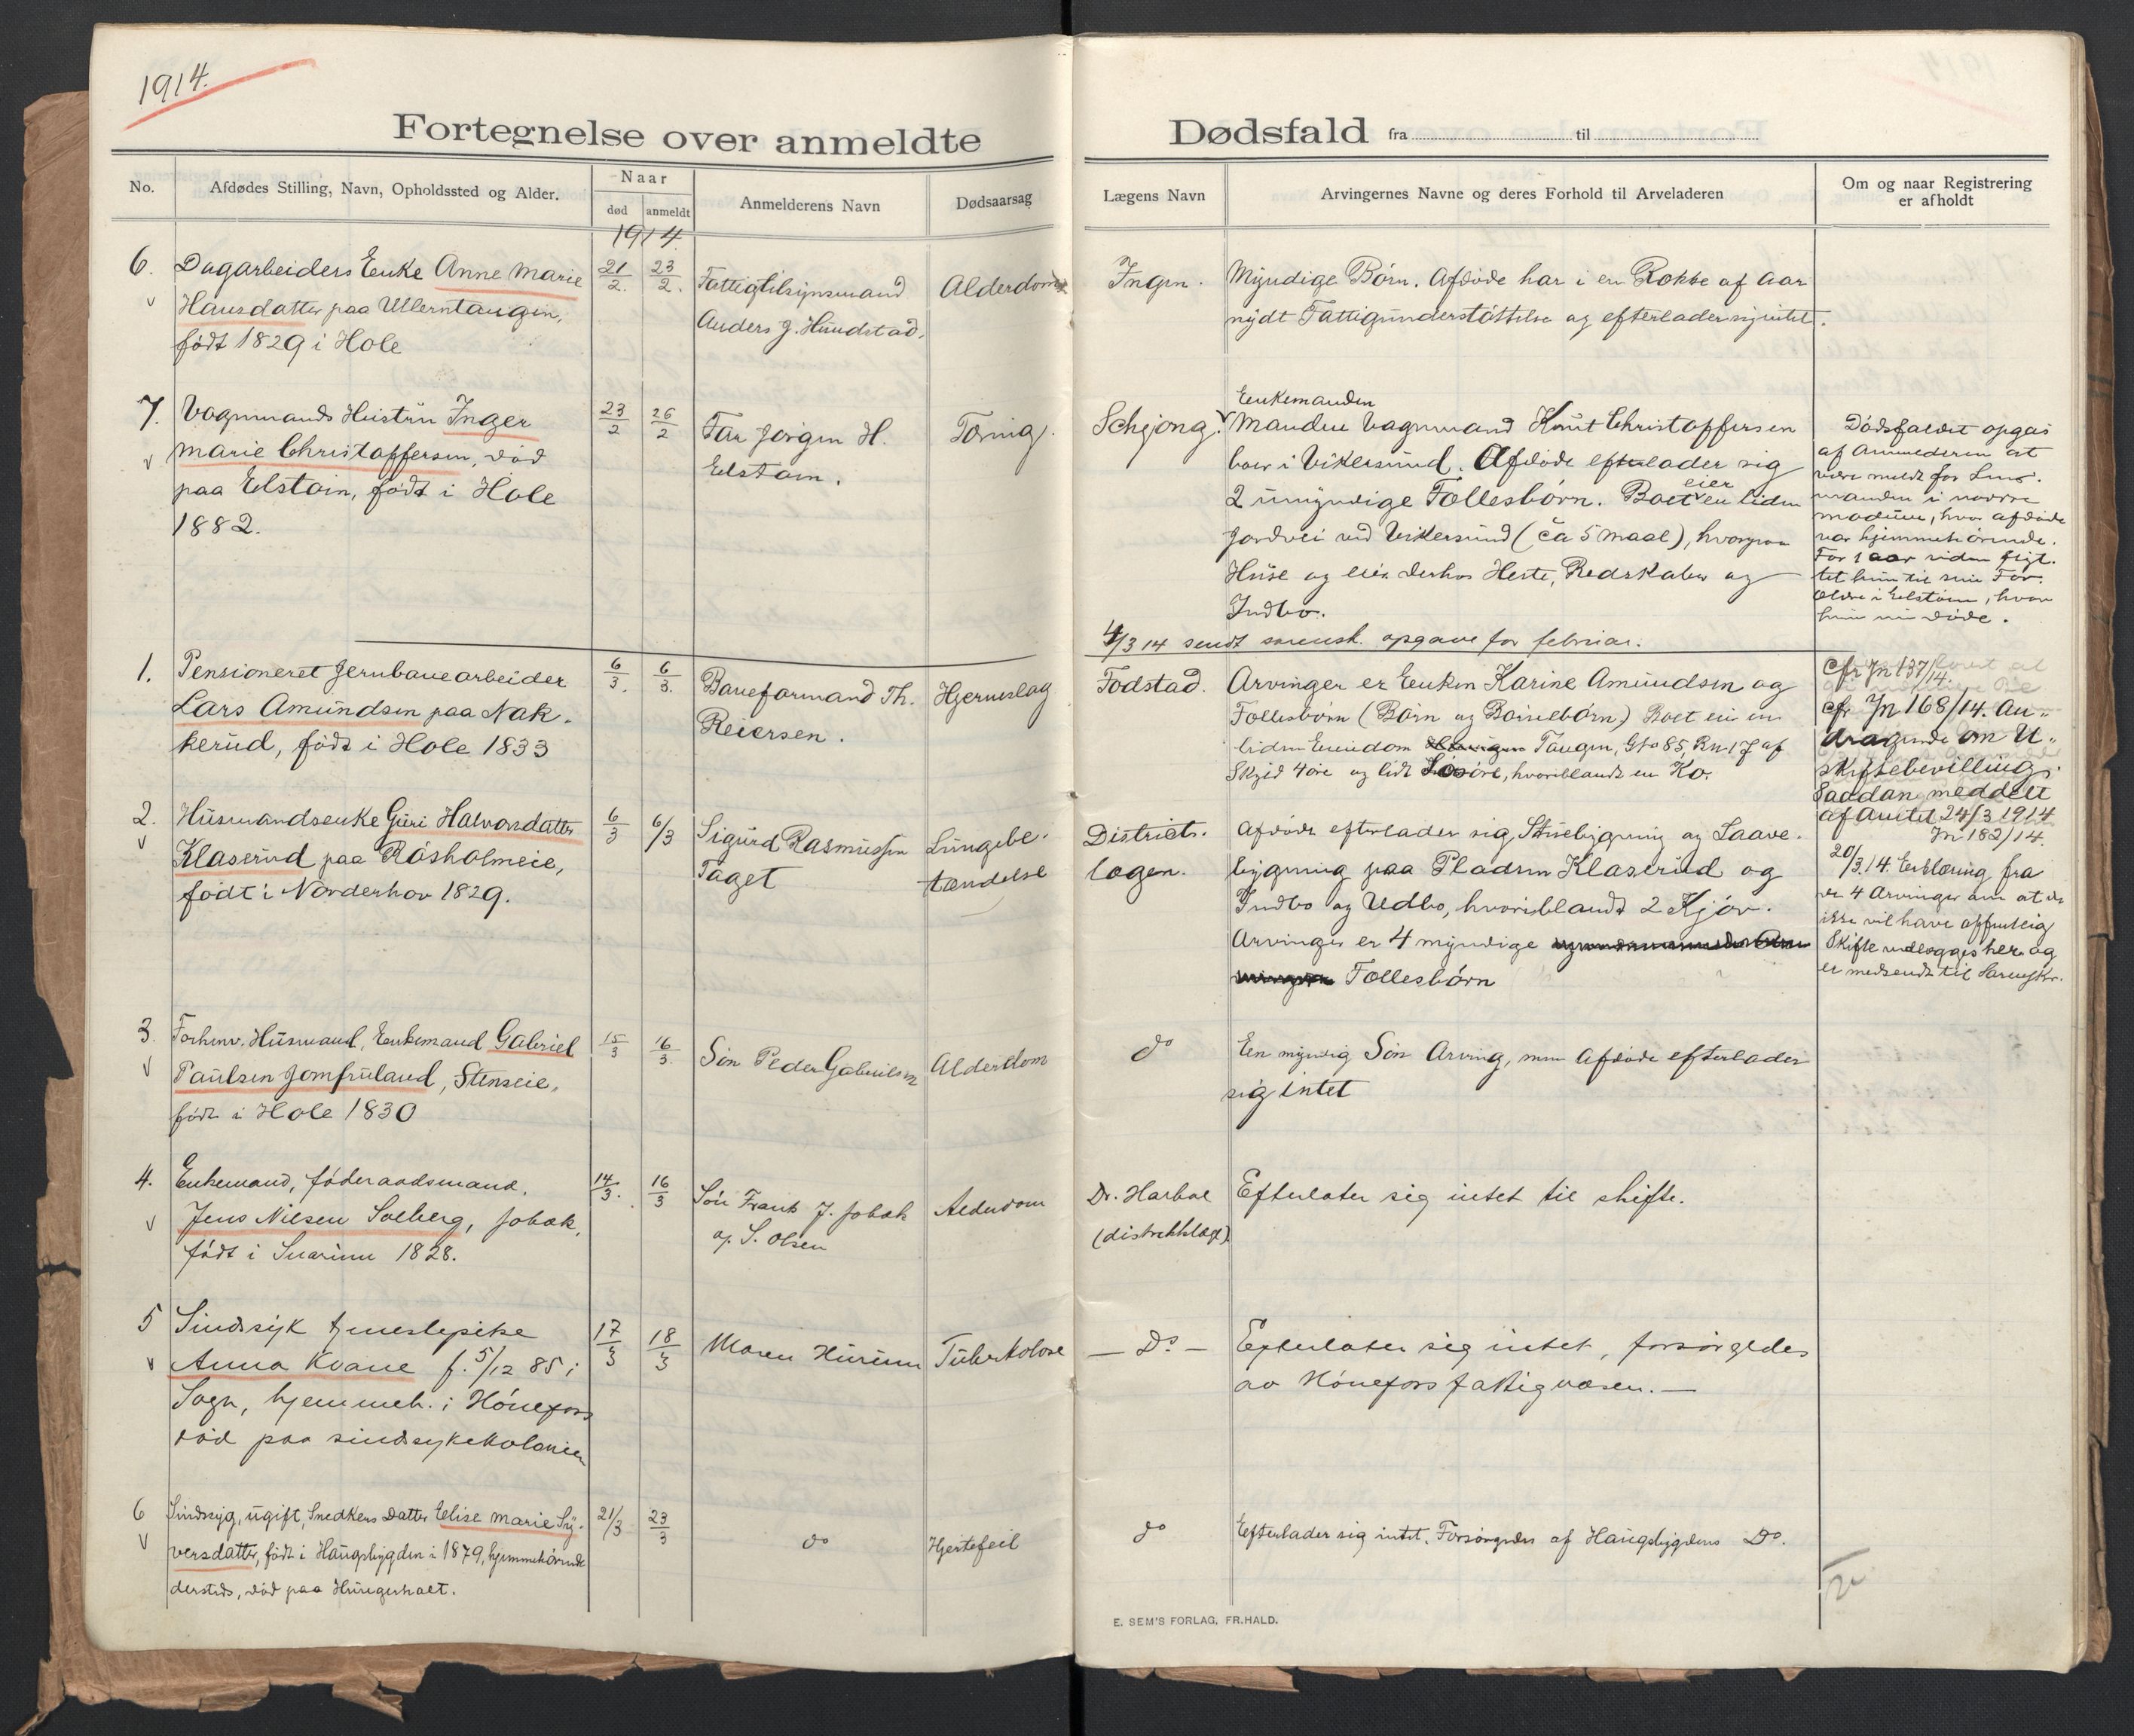 1914.
Fortegnelse over anmeldte
Dødsfald fra til
No.
Afdødes Stilling, Navn, Opholdssted og Alder.
Naar
død
anmeldt
Anmelderens Navn
Dødsaarsag
Lægens Navn
Arvingernes Navne og deres Forhold til Arveladeren
Om og naar Registrering
er afholdt
1914.
6.
Dagarbeiders Enke Anne Marie
Hansdatter paa Ullerntangen,
født 1829 i Hole
21/2.
23/2.
Fattigtilsynsmand
Anders J. Hundstad.
Alderdom
Ingen.
Myndige Børn. Afdøde har i en Række af Aar
nydt Fattigunderstøttelse og efterlader sig intet.
7.
Vognmands Hustru Inger
Marie Christoffersen, død
paa Elstøin, født i Hole
1882.
23/2
26/2
Far Jørgen H.
Elstøin.
Tæring.
Schjong.
Enkemanden
Manden Vagnmand Knut Christoffersen
boer i Vikersund. Afdøde efterlader sig
2 umyndige Fællesbørn. Boet eier en liden
Jordvei ved Vikersund (ca 5 Maal), hvorpaa
Huse og eier derhos Heste, Redskaber og
Indbo.
Dødsfaldet opgas
af Anmelderen at
være meldt for Lens-
manden i nordre
Modum, hvor afdøde
var hjemmehørende.
For 1 aar siden flyt-
tet hun til sine For-
ældre i Elstøin, hvor
hun nu døde.
4/3 14 sendt sorensk. opgave for februar.
1.
Pensioneret Jernbanearbeider
Lars Amundsen paa Nak-
kerud, født i Hole 1833
6/3.
6/3.
Baneformand Th.
Reiersen.
Hjerneslag
Todstad.
Arvinger er Enken Karine Amundsen og
Fællesbørn (Børn og Barnebørn) Boet eier en
liden Eiendom Tangen, Gno 85, Bn 17 af
Skyld 4 øre og lidt Løsøre, hvoriblandt en Ko.
Cfr Jn 137/14.
Cfr Jn 168/14. An-
dragende om U-
skiftebevilling.
Saadan meddelt
af Amtet 24/3 1914
Jn 182/14.
2.
Husmandsenke Guri Halvorsdatter
Klaserud paa Røsholmeie,
født i Norderhov 1829.
6/3
6/3
Sigurd Rasmussen
Taget
Lungebe-
tændelse
Districts-
lægen.
Afdøde efterlader sig Stuebygning og Laave-
bygning paa Pladsen Klaserud og
Indbo og Udbo, hvoriblandt 2 Kjør.
Arvinger er 4 myndige
Fællesbørn
20/3.14. Erklæring fra
de 4 Arvinger om at de
ikke vil have offentlig
Skifte vedlægges her og
er medsendt til Sorenskr.
3.
Forhenv. Husmand, Enkemand Gabriel
Paulsen Jomfruland, Stenseie,
født i Hole 1830
15/3
16/3.
Søn Peder Gabrielsen
Alderdom
do
En myndig Søn Arving, men Afdøde efterlader
sig intet
4.
Enkemand, føderaadsmand,
Jens Nilsen Solberg, Jobak,
født i Snarum 1828.
14/3.
16/3
Søn Frants J. Jobak
og S. Olsen
Alderdom
Dr. Harboe
(distriktslæge)
Efterlater sig intet til skifte.
5
Sindssyk tjenestepike
Anna Kvane f. 5/12 85 i
Sogn, hjemmeh. i Hønefoss
død paa sindssykekolonien
17/3
18/3
Maren Hurum
Tuberkolose
— Do —
Efterlater sig intet, forsørgedes
av Hønefoss fattigvæsen. —
6
Sindssyg, ugift, Snedkers Datter Elise Marie Sy-
versdatter, født i Haugsbygden i 1879, hjemmehørende
dersteds, død paa Hungerholt.
21/3
23/3
do
Hjertefeil
do
Efterlader sig intet. Forsørgedes af Haugsbygdens Do.
E. SEM'S FORLAG, FR.HALD.